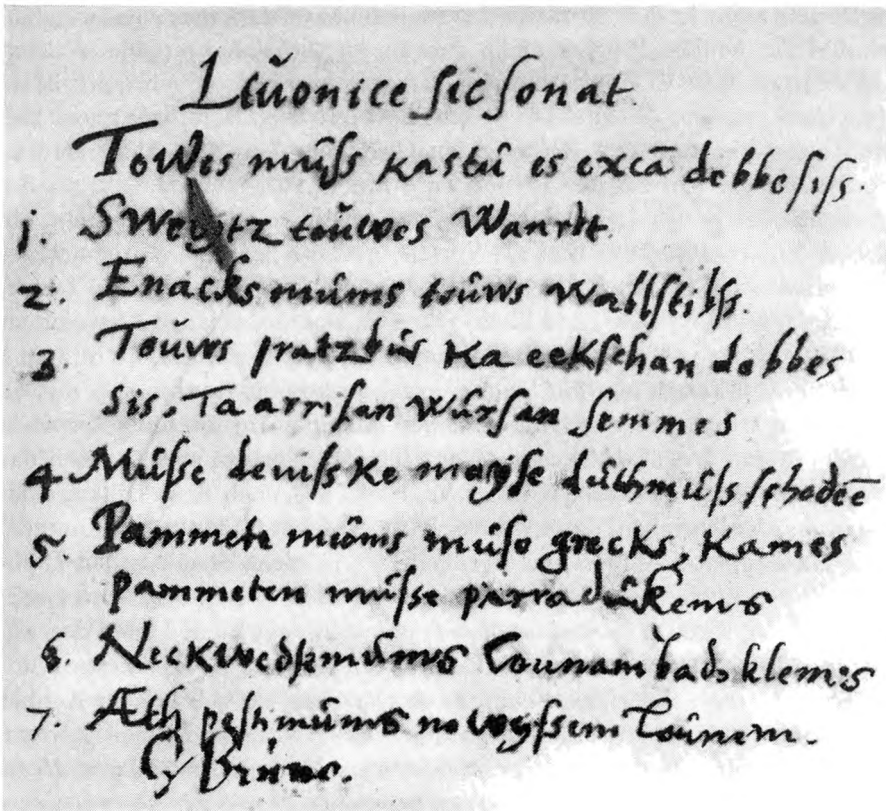 Liuonice sic sonat
Towes muss kas tu es excā debbesiss.
1. Sweytz touwes Wardt
2. Enacks mums touws Wallstibss.
3. Touws pratz bus Ka eekschan debbes
sis. Ta arrisan wursan semmes
4 Musse deniss ke mayse duth muss schodeē
5. Pammete mums muse grecks, Kames
pammeten musse parradukems
6. Neckwedz mums Lounam badeklems
7. Æth pesti mums no wyssem Lounem.